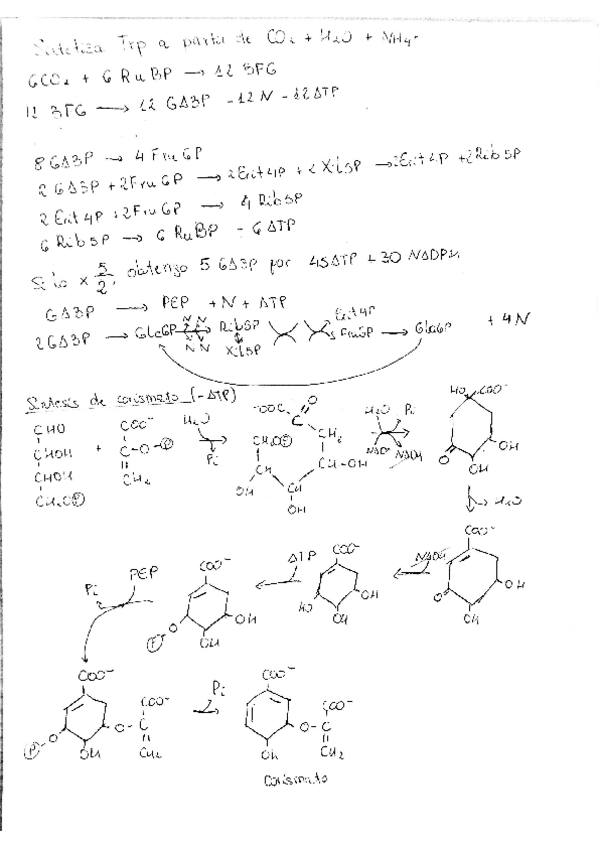 Sintetiza Trp a partir de CO₂ + H₂O + NH₄⁺
6CO₂ + 6 RuBP → 12 3PG
12 3PG → 12 GA3P - 12 N - 12 ATP
8 GA3P → 4 Fru6P
2 GA3P + 2 Fru6P → 2 Erit4P + 2 Xil5P → 2 Erit4P + 2 Rib5P
2 Erit4P + 2 Fru6P → 4 Rib5P
6 Rib5P → 6 RuBP - 6 ATP
Si lo × 5/2, obtengo 5 GA3P por 45 ATP + 30 NADPH
GA3P → PEP + N + ATP
2 GA3P → Glc6P → Rib5P Erit4P Fru6P → Glc6P + 4N
N N N N Xil5P
Síntesis de corismato (-ATP)
CHO
CHOH
CHOH
CH₂OP
+
COO⁻
C-O-P
CH₂
H₂O
Pi
⁻OOC
C
O
CH₂
CH-OH
CH
OH
CH
OH
CH₂OP
H₂O Pi
NAD⁺ NADH
HO COO⁻
O
OH
OH
H₂O
COO⁻
O
OH
OH
NADPH
COO⁻
HO
OH
OH
ATP
COO⁻
P-O
OH
OH
PEP
Pi
COO⁻
P-O
OH
O-C
COO⁻
CH₂
Pi
COO⁻
OH
O-C
COO⁻
CH₂
Corismato